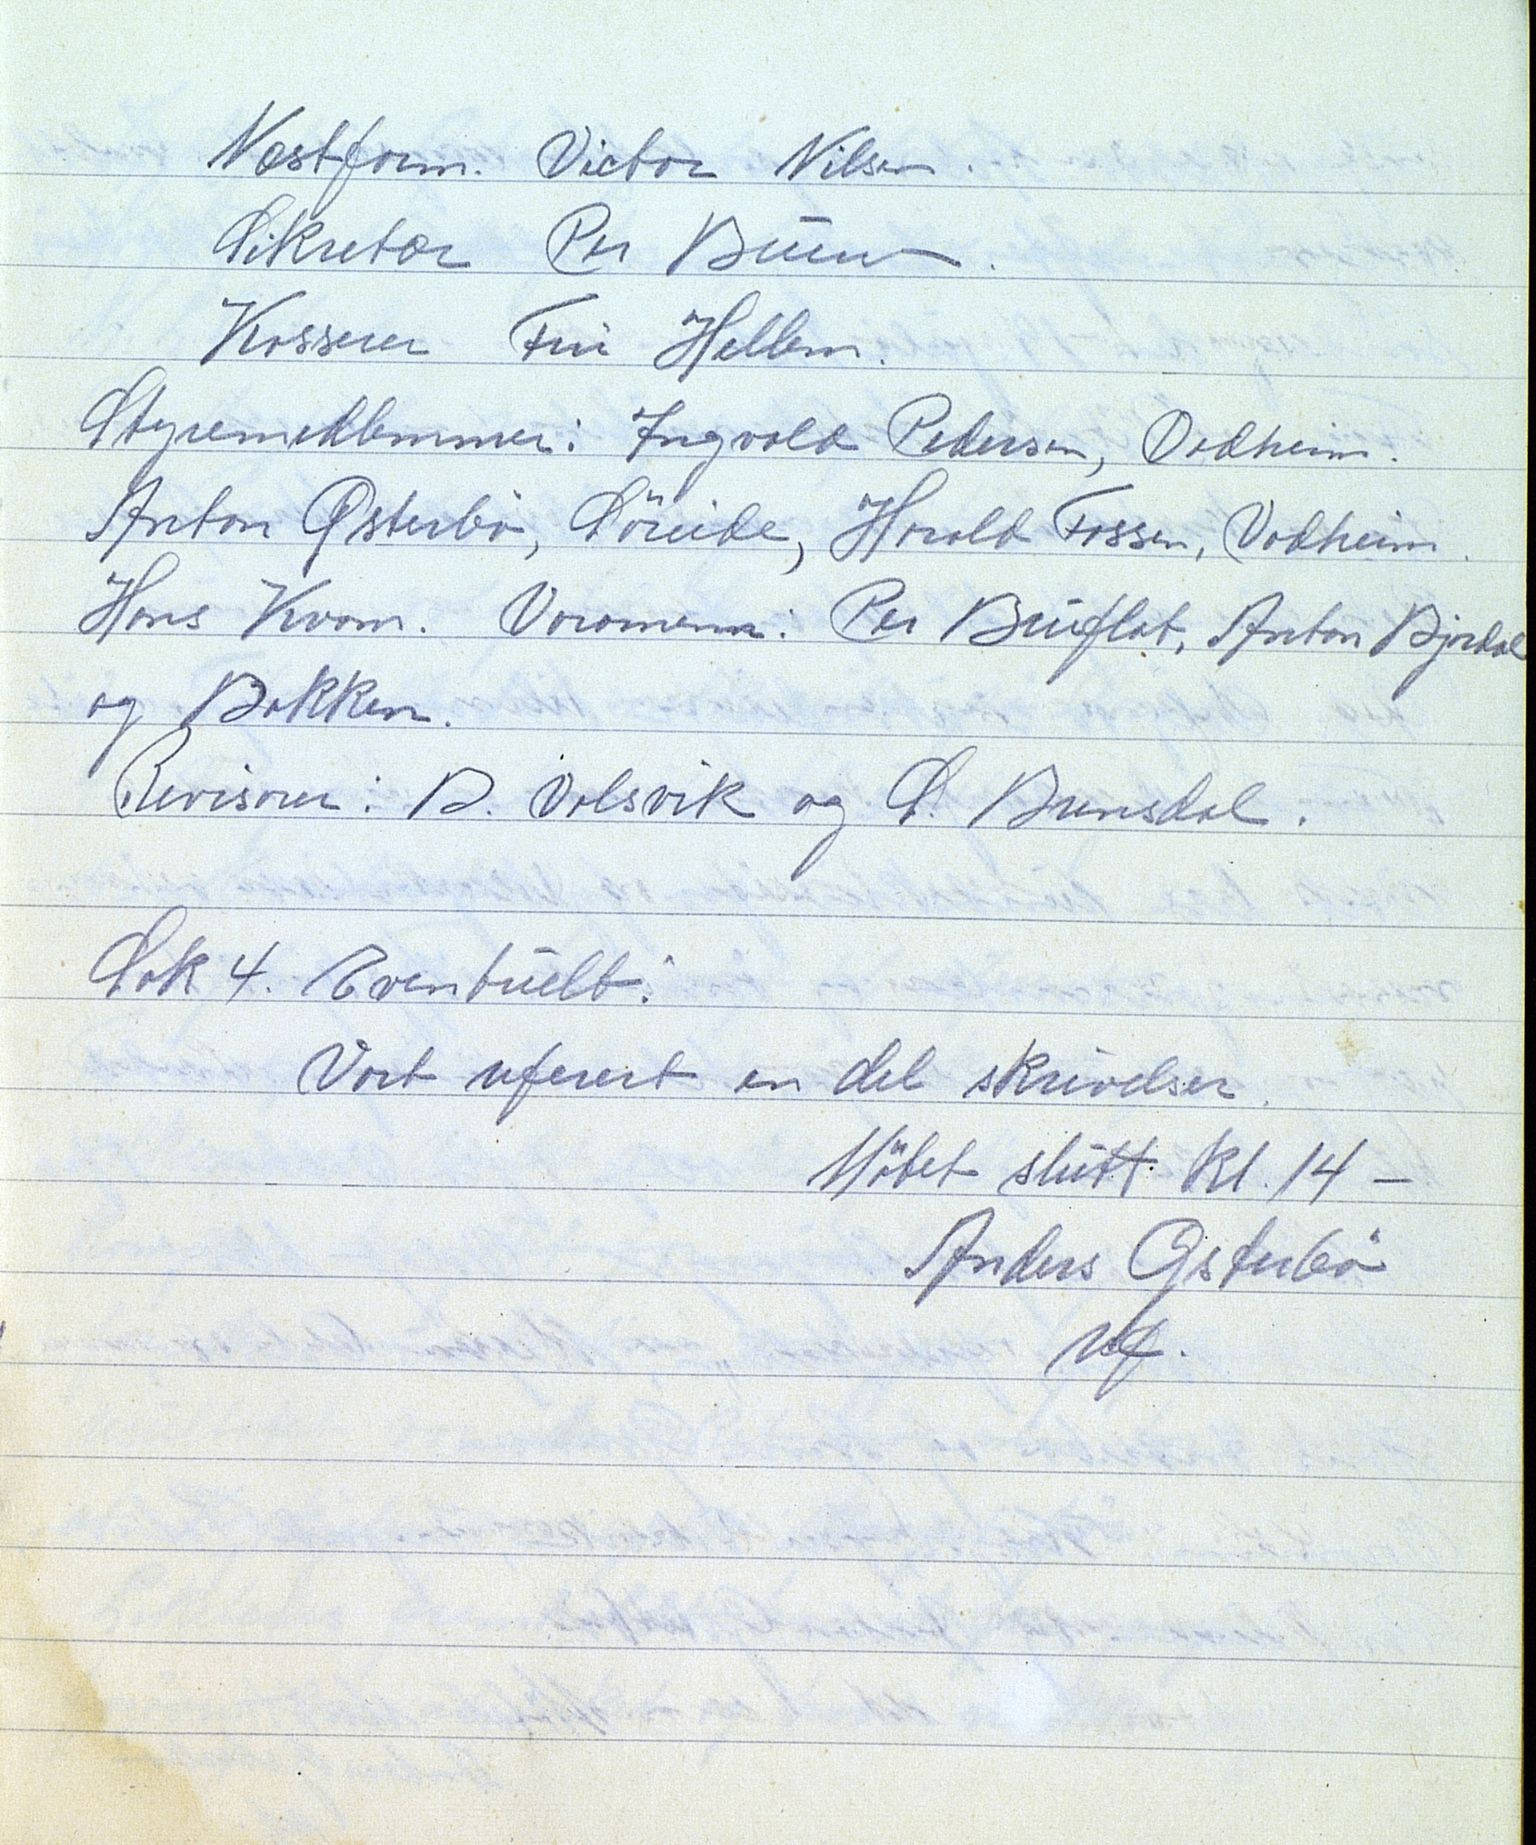 Næstform. Victor Nilsen.
Sikretær Per Buene.
Kasserer Frú Hellem.
Styremedlemmer: Ingvald Pedersen, Vadheim.
Anton Østerbö, Söreide, Harald Fossen, Vadheim.
Hans Kvam. Varamenn: Per Búflat, Anton Bjordal
og Bakken.
Revisorer: B. Valsvik og S. Brunsdal.
Sak 4. Eventúelt:
Vart referert en del skrivelser.
Mötet slutt kl. 14 –
Anders Østerbö
ref.